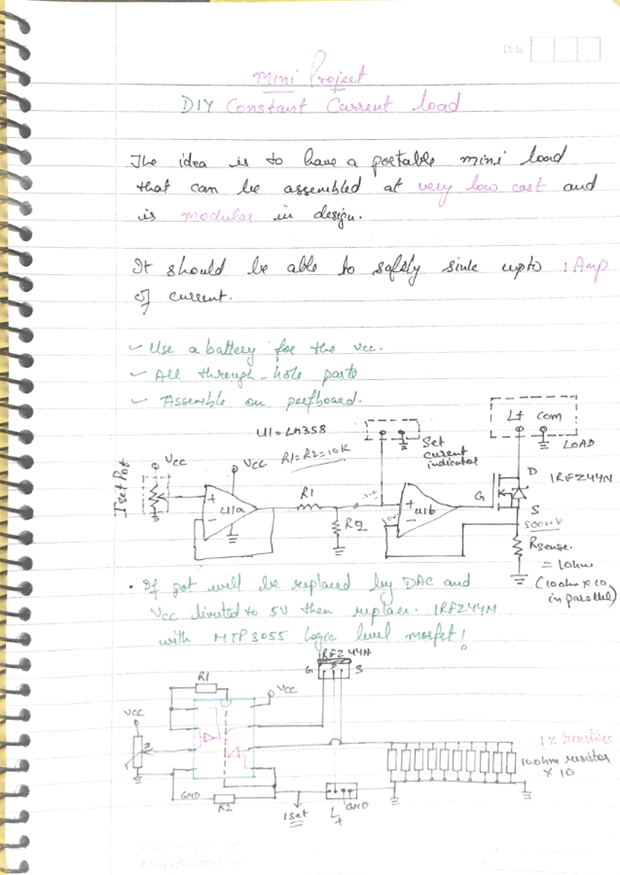 Date
Mini Project
DIY Constant Current load
The idea is to have a portable mini load
that can be assembled at very low cost and
is modular in design.
It should be able to safely sink upto 1 Amp
of current.
- Use a battery for the vcc.
- All through-hole parts
- Assemble on perfboard.
U1 = LM358
R1=R2=10K
Set
current
indicator
L+ Com
LOAD
Iset Pot
VCC
VCC
+
-
U1a
R1
R2
+
-
U1b
G
D
S
IRFZ44N
500mV
Rsense.
= 1ohm
(10ohm x 10
in parallel)
• If pot will be replaced by DAC and
Vcc limited to 5V then replace IRFZ44N
with MTP3055 Logic level mosfet!
IRFZ44N
G D S
R1
VCC
VCC
GND
R2
Iset
L+
GND
1% resistors
10ohm resistor
x 10